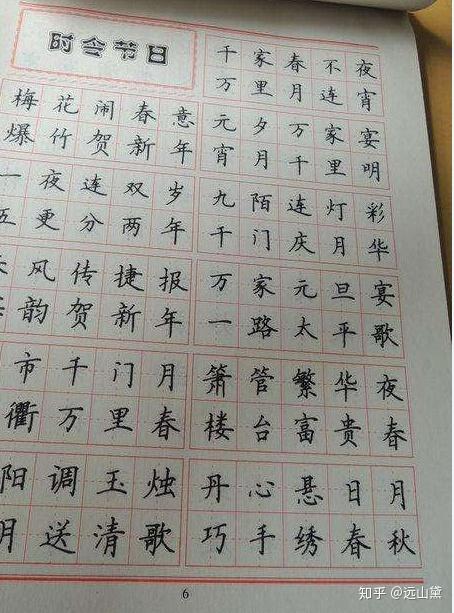 时令节日
梅花闹春意
爆竹贺新年
一夜连双岁
五更分两年
风传捷报
韵贺新年
市千门月
衢万里春
阳调玉烛
月送清歌
千家春不夜
万里月连宵
元夕万家宴
宵月千里明
九陌连灯彩
千门庆月华
万家元旦宴
一路太平歌
箫管繁华夜
楼台富贵春
丹心悬日月
巧手绣春秋
6
知乎 @远山黛